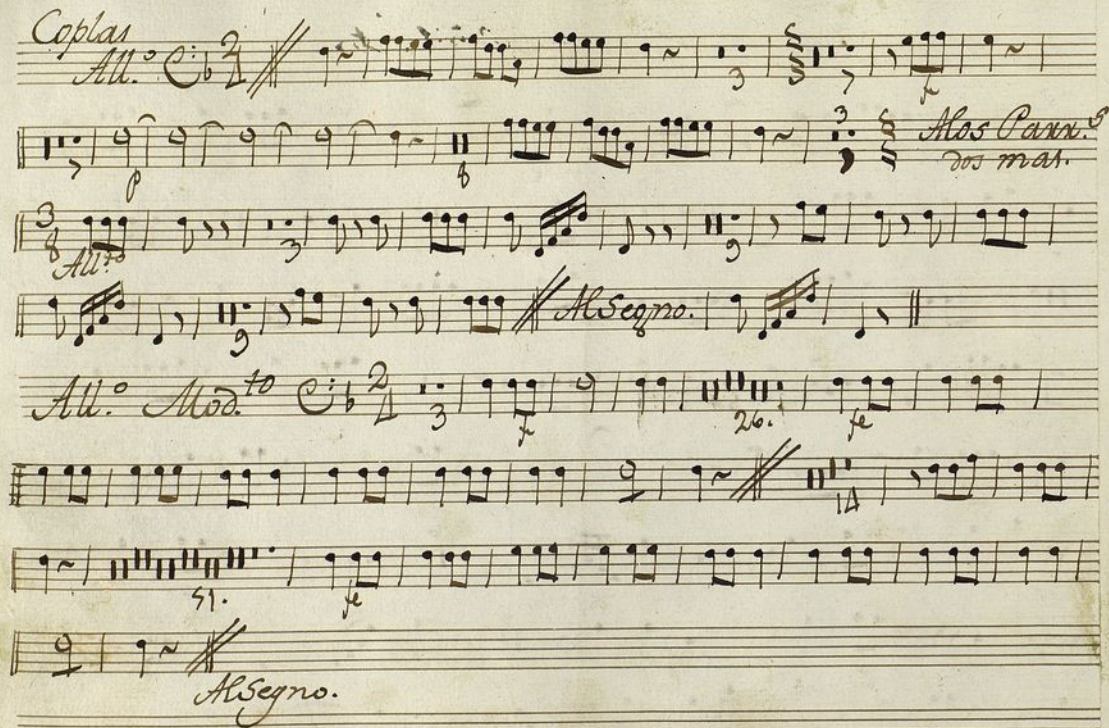 Coplas
All.º 2/4
3 7 f
7 p 8 3 Al os Parr.s
dos mas.
3/8 3 9
All.to
9 Al Segno.
All.º Mod.to 2/4 3 f 26. fe
14
51. fe
Al Segno.